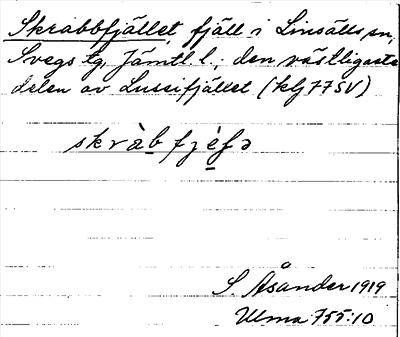 Skrabbfjället fjäll i Linsälls sn,
Svegs tg, Jämtl. l.; den västligaste
delen av Lussifjället (klj 77SV)
skràb fjéʃə
S Åsander 1919
Ulma 755:10